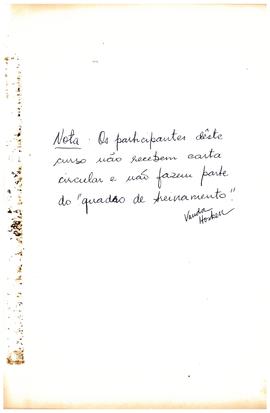 Nota. Os participantes dêste
curso não recebem carta
circular e não fazem parte
do "quadro de treinamento".
Vanda